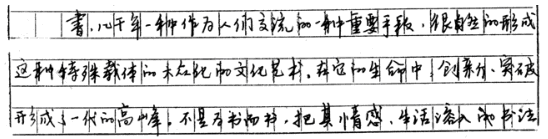 書,几千年一种作为人们交流的一种重要手段,很自然的形成
这种特殊载体的未在化的文化艺术,在它的生命中,创新、突破
形成了一代的高峰,不是为书而书,把其情感、生活溶入的书法